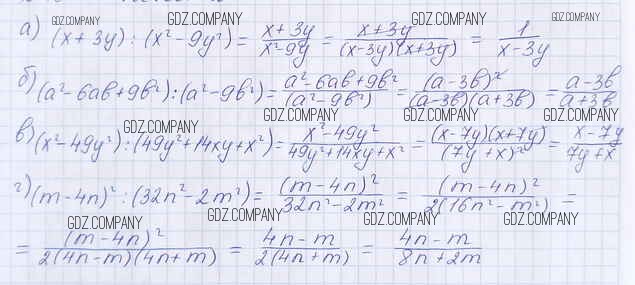 GDZ.COMPANY GDZ.COMPANY GDZ.COMPANY GDZ.COMPANY
а) (x + 3y) : (x² - 9y²) = (x + 3y)/(x² - 9y) = (x + 3y)/((x - 3y)(x + 3y)) = 1/(x - 3y)
б) (a² - 6ab + 9b²) : (a² - 9b²) = (a² - 6ab + 9b²)/(a² - 9b²) = (a - 3b)²/((a - 3b)(a + 3b)) = (a - 3b)/(a + 3b)
GDZ.COMPANY GDZ.COMPANY GDZ.COMPANY GDZ.COMPANY
в) (x² - 49y²) : (49y² + 14xy + x²) = (x² - 49y²)/(49y² + 14xy + x²) = (x - 7y)(x + 7y)/(7y + x)² = (x - 7y)/(7y + x)
г) (m - 4n)² : (32n² - 2m²) = (m - 4n)²/(32n² - 2m²) = (m - 4n)²/(2(16n² - m²)) =
GDZ.COMPANY GDZ.COMPANY GDZ.COMPANY GDZ.COMPANY
= (m - 4n)²/(2(4n - m)(4n + m)) = (4n - m)/(2(4n + m)) = (4n - m)/(8n + 2m)